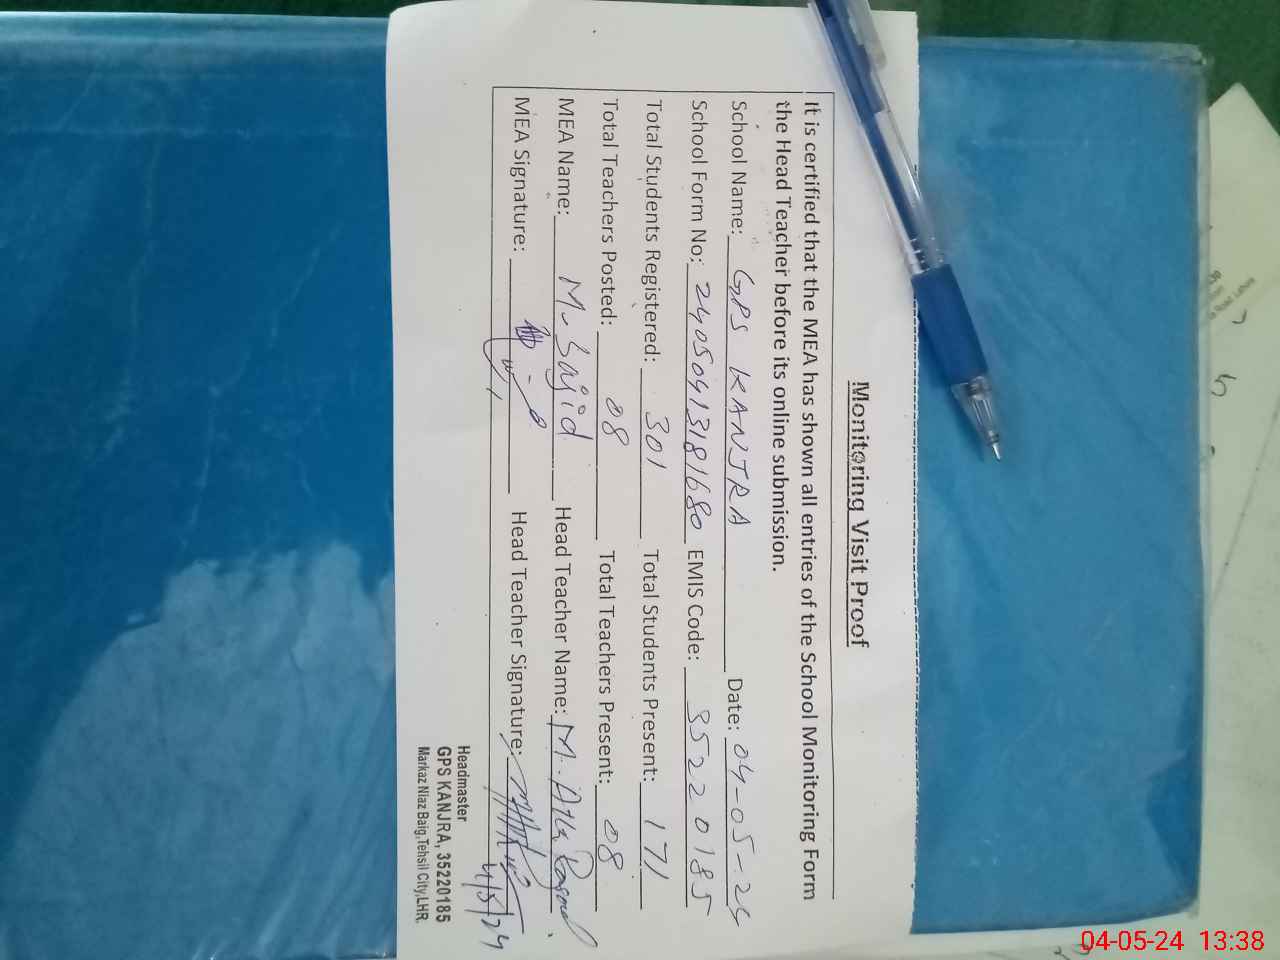 Monitoring Visit Proof
It is certified that the MEA has shown all entries of the School Monitoring Form
the Head Teacher before its online submission.
School Name: GPS KANJRA Date: 04-05-24
School Form No: 24050413181680 EMIS Code: 35220185
Total Students Registered: 301 Total Students Present: 171
Total Teachers Posted: 08 Total Teachers Present: 08
MEA Name: M. Sajid Head Teacher Name: M. Atta Rasool
MEA Signature: Head Teacher Signature:
4/5/24
Headmaster
GPS KANJRA, 35220185
Markaz Niaz Baig,Tehsil City,LHR.
04-05-24 13:38